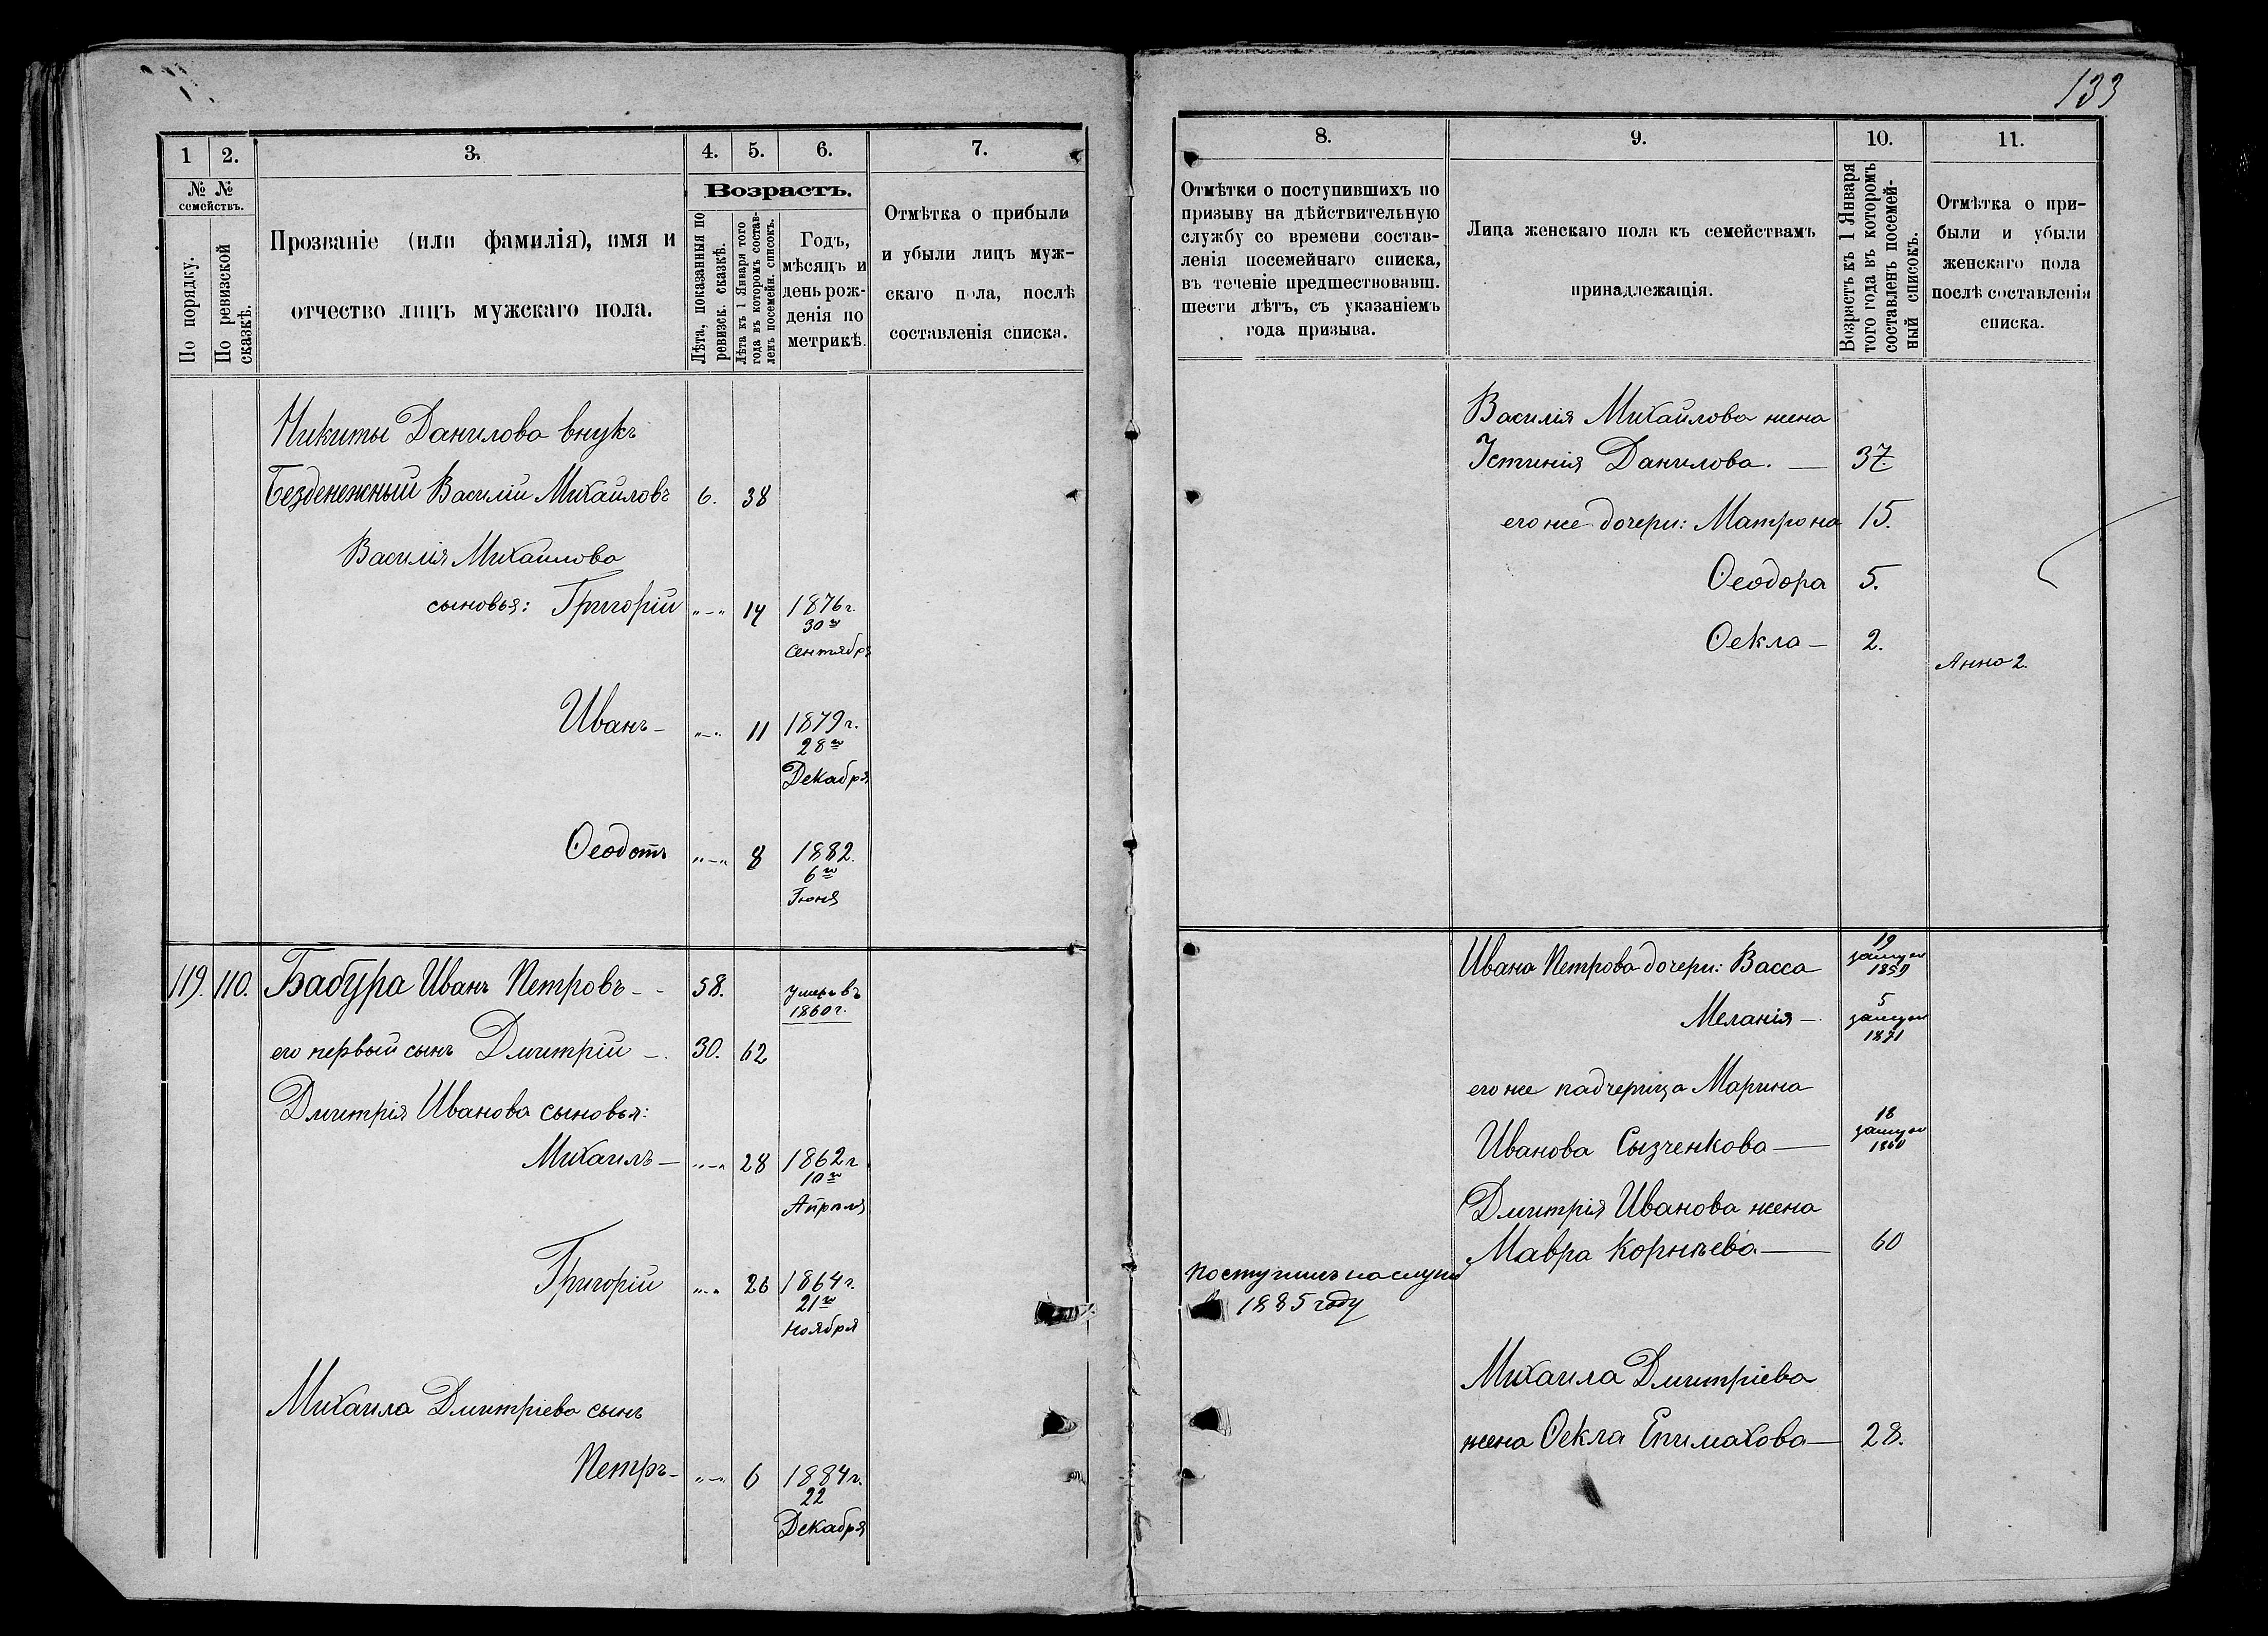 133
1
2.
3.
4.
5.
6.
7.
№ №
семействъ.
По порядку.
По ревизской
сказкѣ.
Прозваніе (или фамилія), имя и
отчество лицъ мужскаго пола.
Возрастъ.
Лѣта, показанныя по
ревизск. сказкѣ.
Лѣта къ 1 Января того
года въ которомъ состав-
ленъ посемейн. списокъ.
Годъ,
мѣсяцъ и
день рож-
денія по
метрикѣ.
Отмѣтка о прибыли
и убыли лицъ муж-
скаго пола, послѣ
составленія списка.
Никиты Данилова внукъ
Безденежный Василій Михайловъ 6. 38
Василія Михайлова
сыновья: Григорій „-„ 14 1876 г.
30го
Сентября
Иванъ - „-„ 11 1879 г.
28го
Декабря
Ѳеодотъ „-„ 8 1882.
6го
Іюня
119. 110. Бабура Иванъ Петровъ - - 58. умеръ въ
1860 г.
его первый сынъ Дмитрій - . 30. 62
Дмитрія Иванова сыновья:
Михаилъ — „-„ 28 1862 г
10го
Апрѣля
Григорій „-„ 26 1864 г.
21го
Ноября
Михаила Дмитріева сынъ
Петръ - „-„ 6 1884 г.
22
Декабря
8.
9.
10.
11.
Отмѣтки о поступившихъ по
призыву на дѣйствительную
службу со времени состав-
ленія посемейнаго списка,
въ теченіе предшествовавш.
шести лѣтъ, съ указаніемъ
года призыва.
Лица женскаго пола къ семействамъ
принадлежащія.
Возрастъ къ 1 Января
того года въ которомъ
составленъ посемей-
ный списокъ.
Отмѣтка о при-
были и убыли
женскаго пола
послѣ составленія
списка.
Василія Михайлова жена
Устинія Данилова. — 37.
его же дочери: Матрона 15.
Ѳеодора 5.
Ѳекла — 2.
Анна 2.
Ивана Петрова дочери: Васса 19
замуж
1859
Меланія — 5
замуж
1871
его же падчерица Марина
Иванова Сызченкова — 18
замуж
1860
Дмитрія Иванова жена
Мавра Корнѣева — 60
поступилъ на служ
въ 1885 году
Михаила Дмитріева
жена Ѳекла Епимахова — 28.